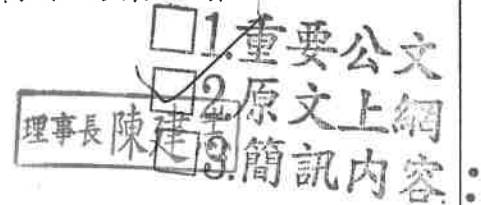 □1.重要公文
□2.原文上網
□3.簡訊內容：
理事長陳建